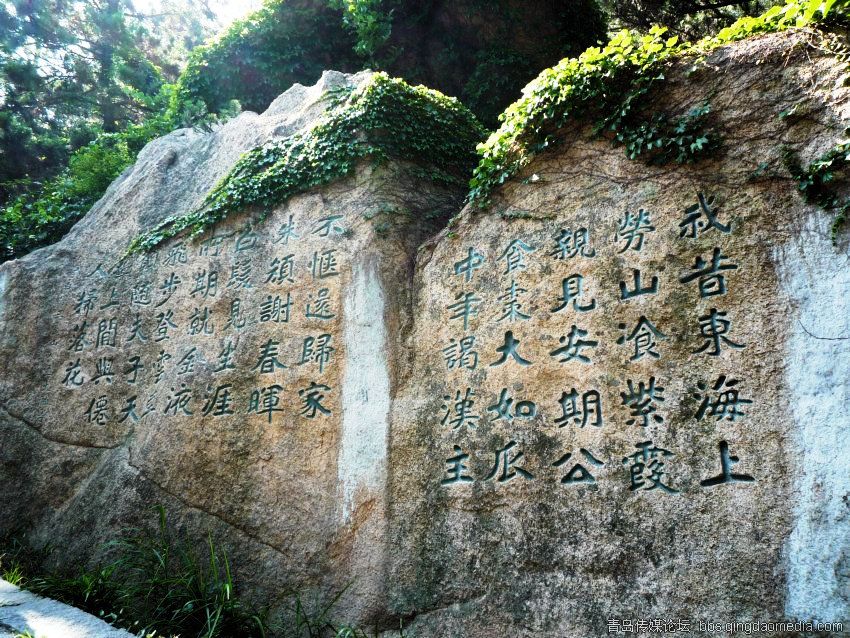 我昔東海上
勞山飡紫霞
親見安期公
食棗大如瓜
中年謁漢主
不愜還歸家
朱顏謝春暉
白髮見生涯
所期就金液
飛步登雲車
願隨夫子天
壇上閒與僊
人掃落花
青岛传媒论坛 bbs.qingdaomedia.com